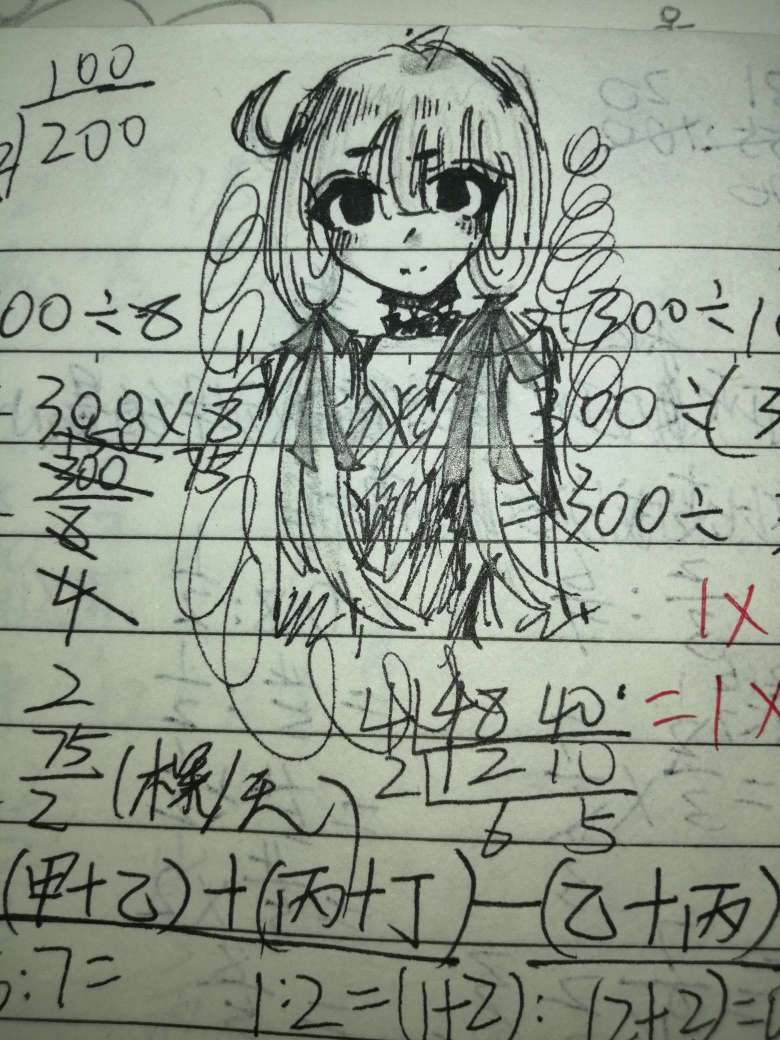 100
200
00÷8
300÷1
300×1/8
300÷(3
300
8
75
300÷
4
1×
2
4 48 40
=1×
75/2(棵/天)
2 12 10
6 5
(甲+乙)+(丙+丁)-(乙+丙)
:7=
1:2=(1+2):(2+2)=